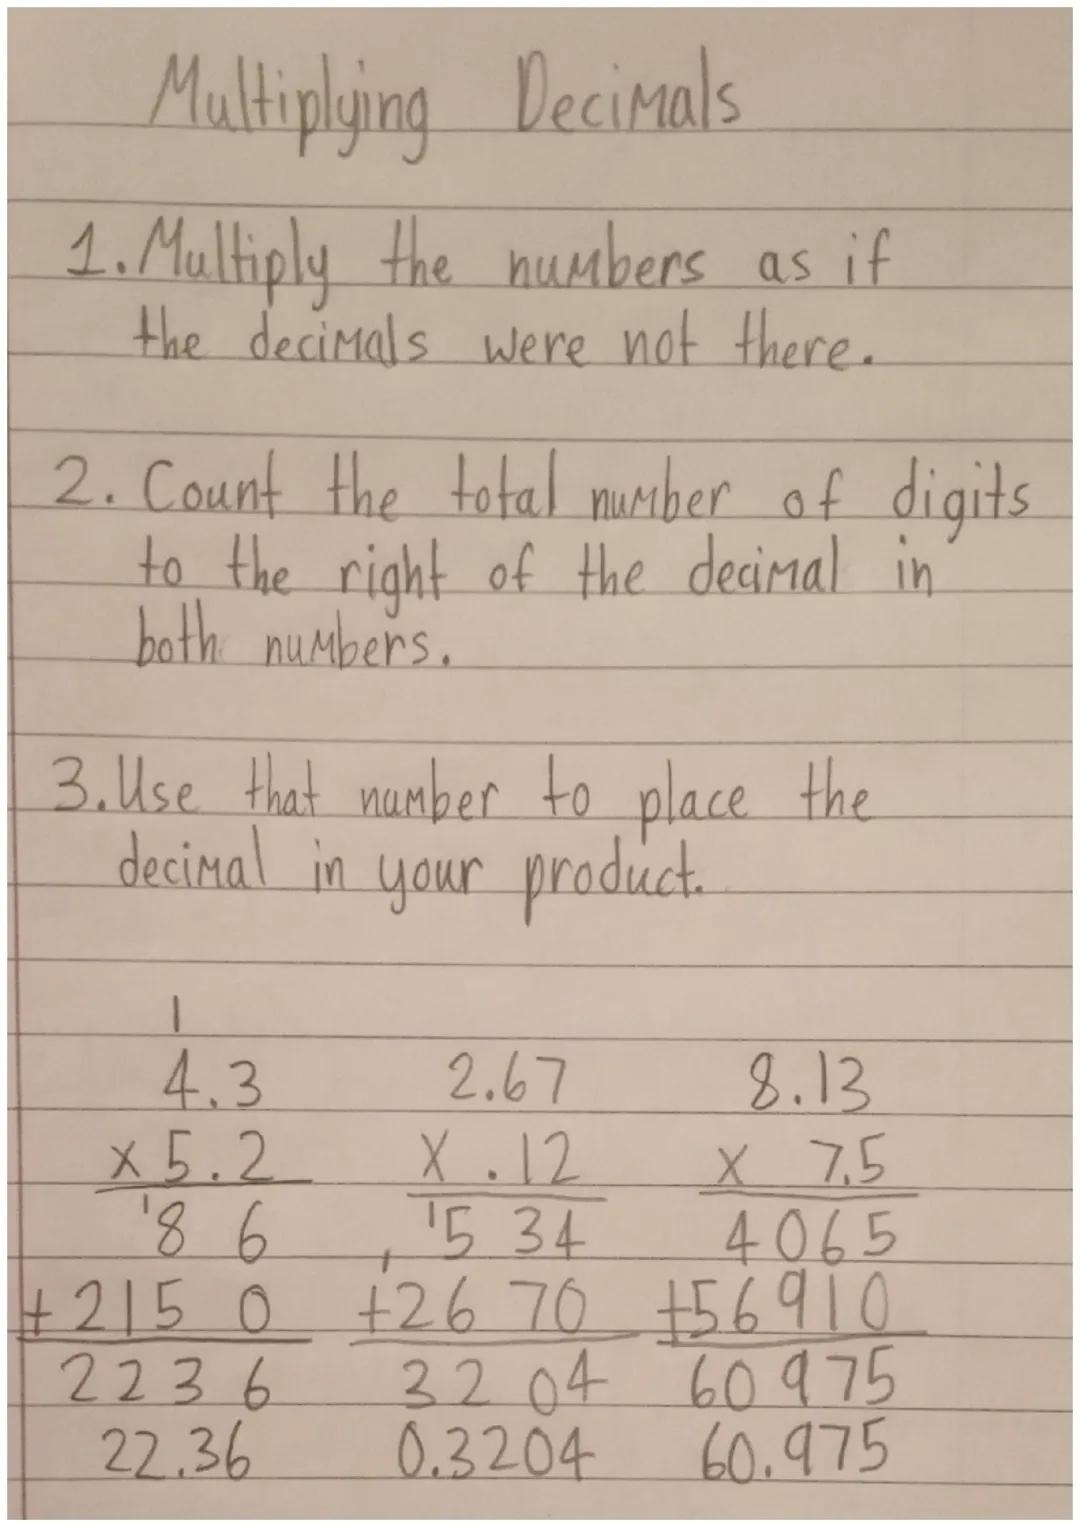 Multiplying Decimals
1. Multiply the numbers as if
the decimals were not there.
2. Count the total number of digits
to the right of the decimal in
both numbers.
3. Use that number to place the
decimal in your product.
1
4.3 2.67 8.13
x 5.2 x .12 x 7.5
186 1534 4065
+2150 +2670 +56910
2236 3204 60975
22.36 0.3204 60.975